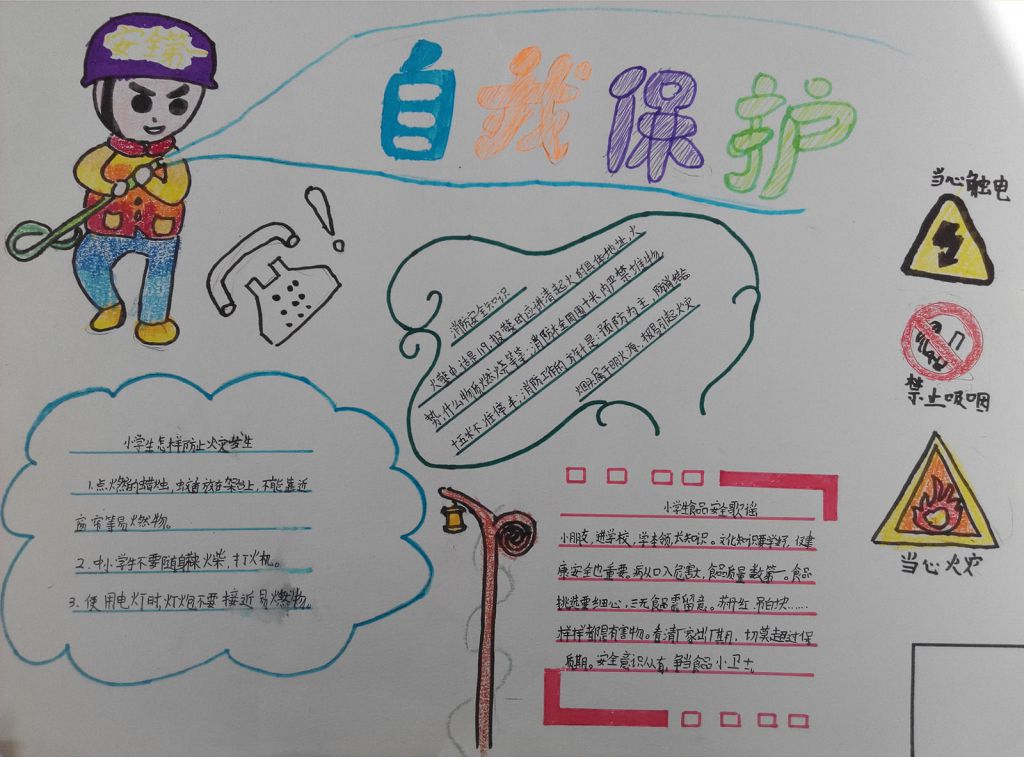 安全第一
自我保护
当心触电
禁止吸烟
当心火灾
消防安全知识
火警电话是119,报警时应讲清起火的具体地址,火
势,什么物质燃烧等等;消防栓周围十米内严禁堆物
十五米不准停车;消防工作的方针是:预防为主,防消结合
烟头属于明火源,极易引起火灾
小学生怎样防止火灾发生
1.点燃的蜡烛,蚊香放在架台上,不能靠近
窗帘等易燃物。
2.中小学生不要随身带火柴,打火机。
3.使用电灯时,灯泡不要接近易燃物。
小学食品安全歌谣
小朋友,进学校,学本领,长知识。文化知识要学好,仅健
康安全也重要。病从口入危害大,食品质量数第一。食品
挑选要细心,三无食品需留意。苏丹红,吊白块……
样样都是有害物。看清厂家出厂期,切莫超过保
质期。安全意识从有,争当食品小卫士。